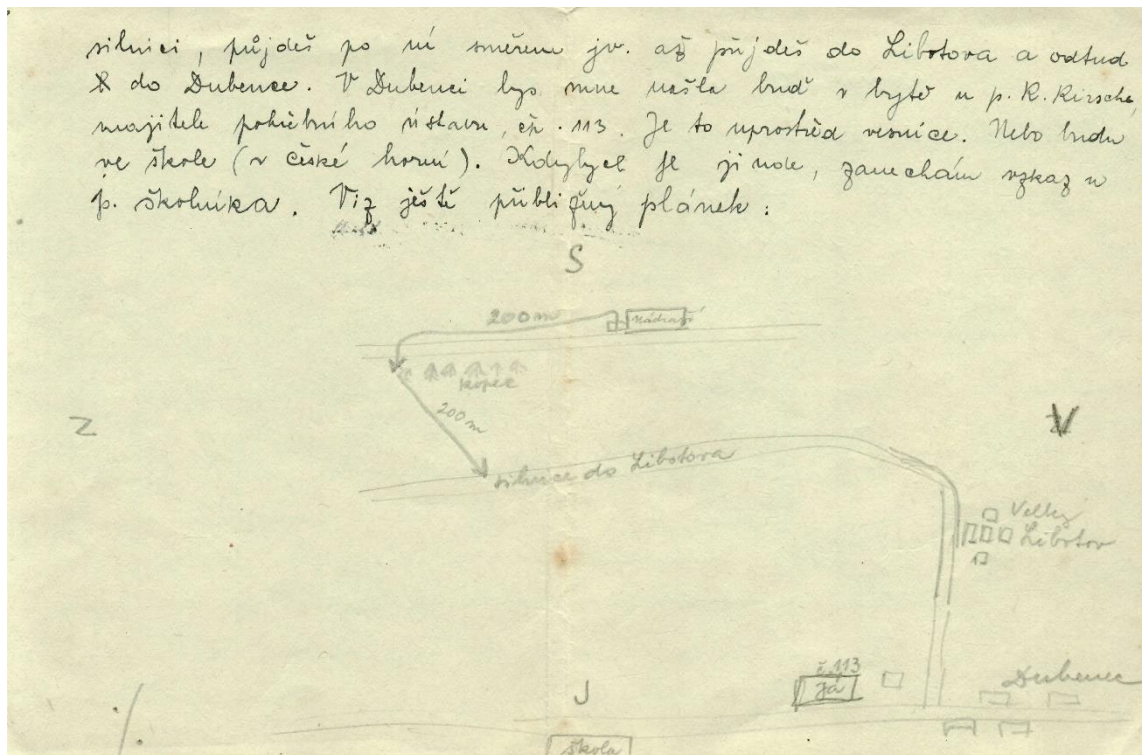 silnici, půjdeš po ní směrem jv. až přijdeš do Libotova a odtud
do Dubence. V Dubenci bys mne našla buď v bytě u p. R. Kirsche,
majitele pohřebního ústavu, čp. 113. Je to uprostřed vesnice. Nebo budu
ve škole (v české horní). Kdybych je jinde, zanechám vzkaz u
p. školníka. Viz ještě přibližný plánek:
S
200 m
Nádraží
kopec
200 m
Z
V
silnice do Libotova
Velký
Libotov
č. 113
Já
Dubenec
J
škola